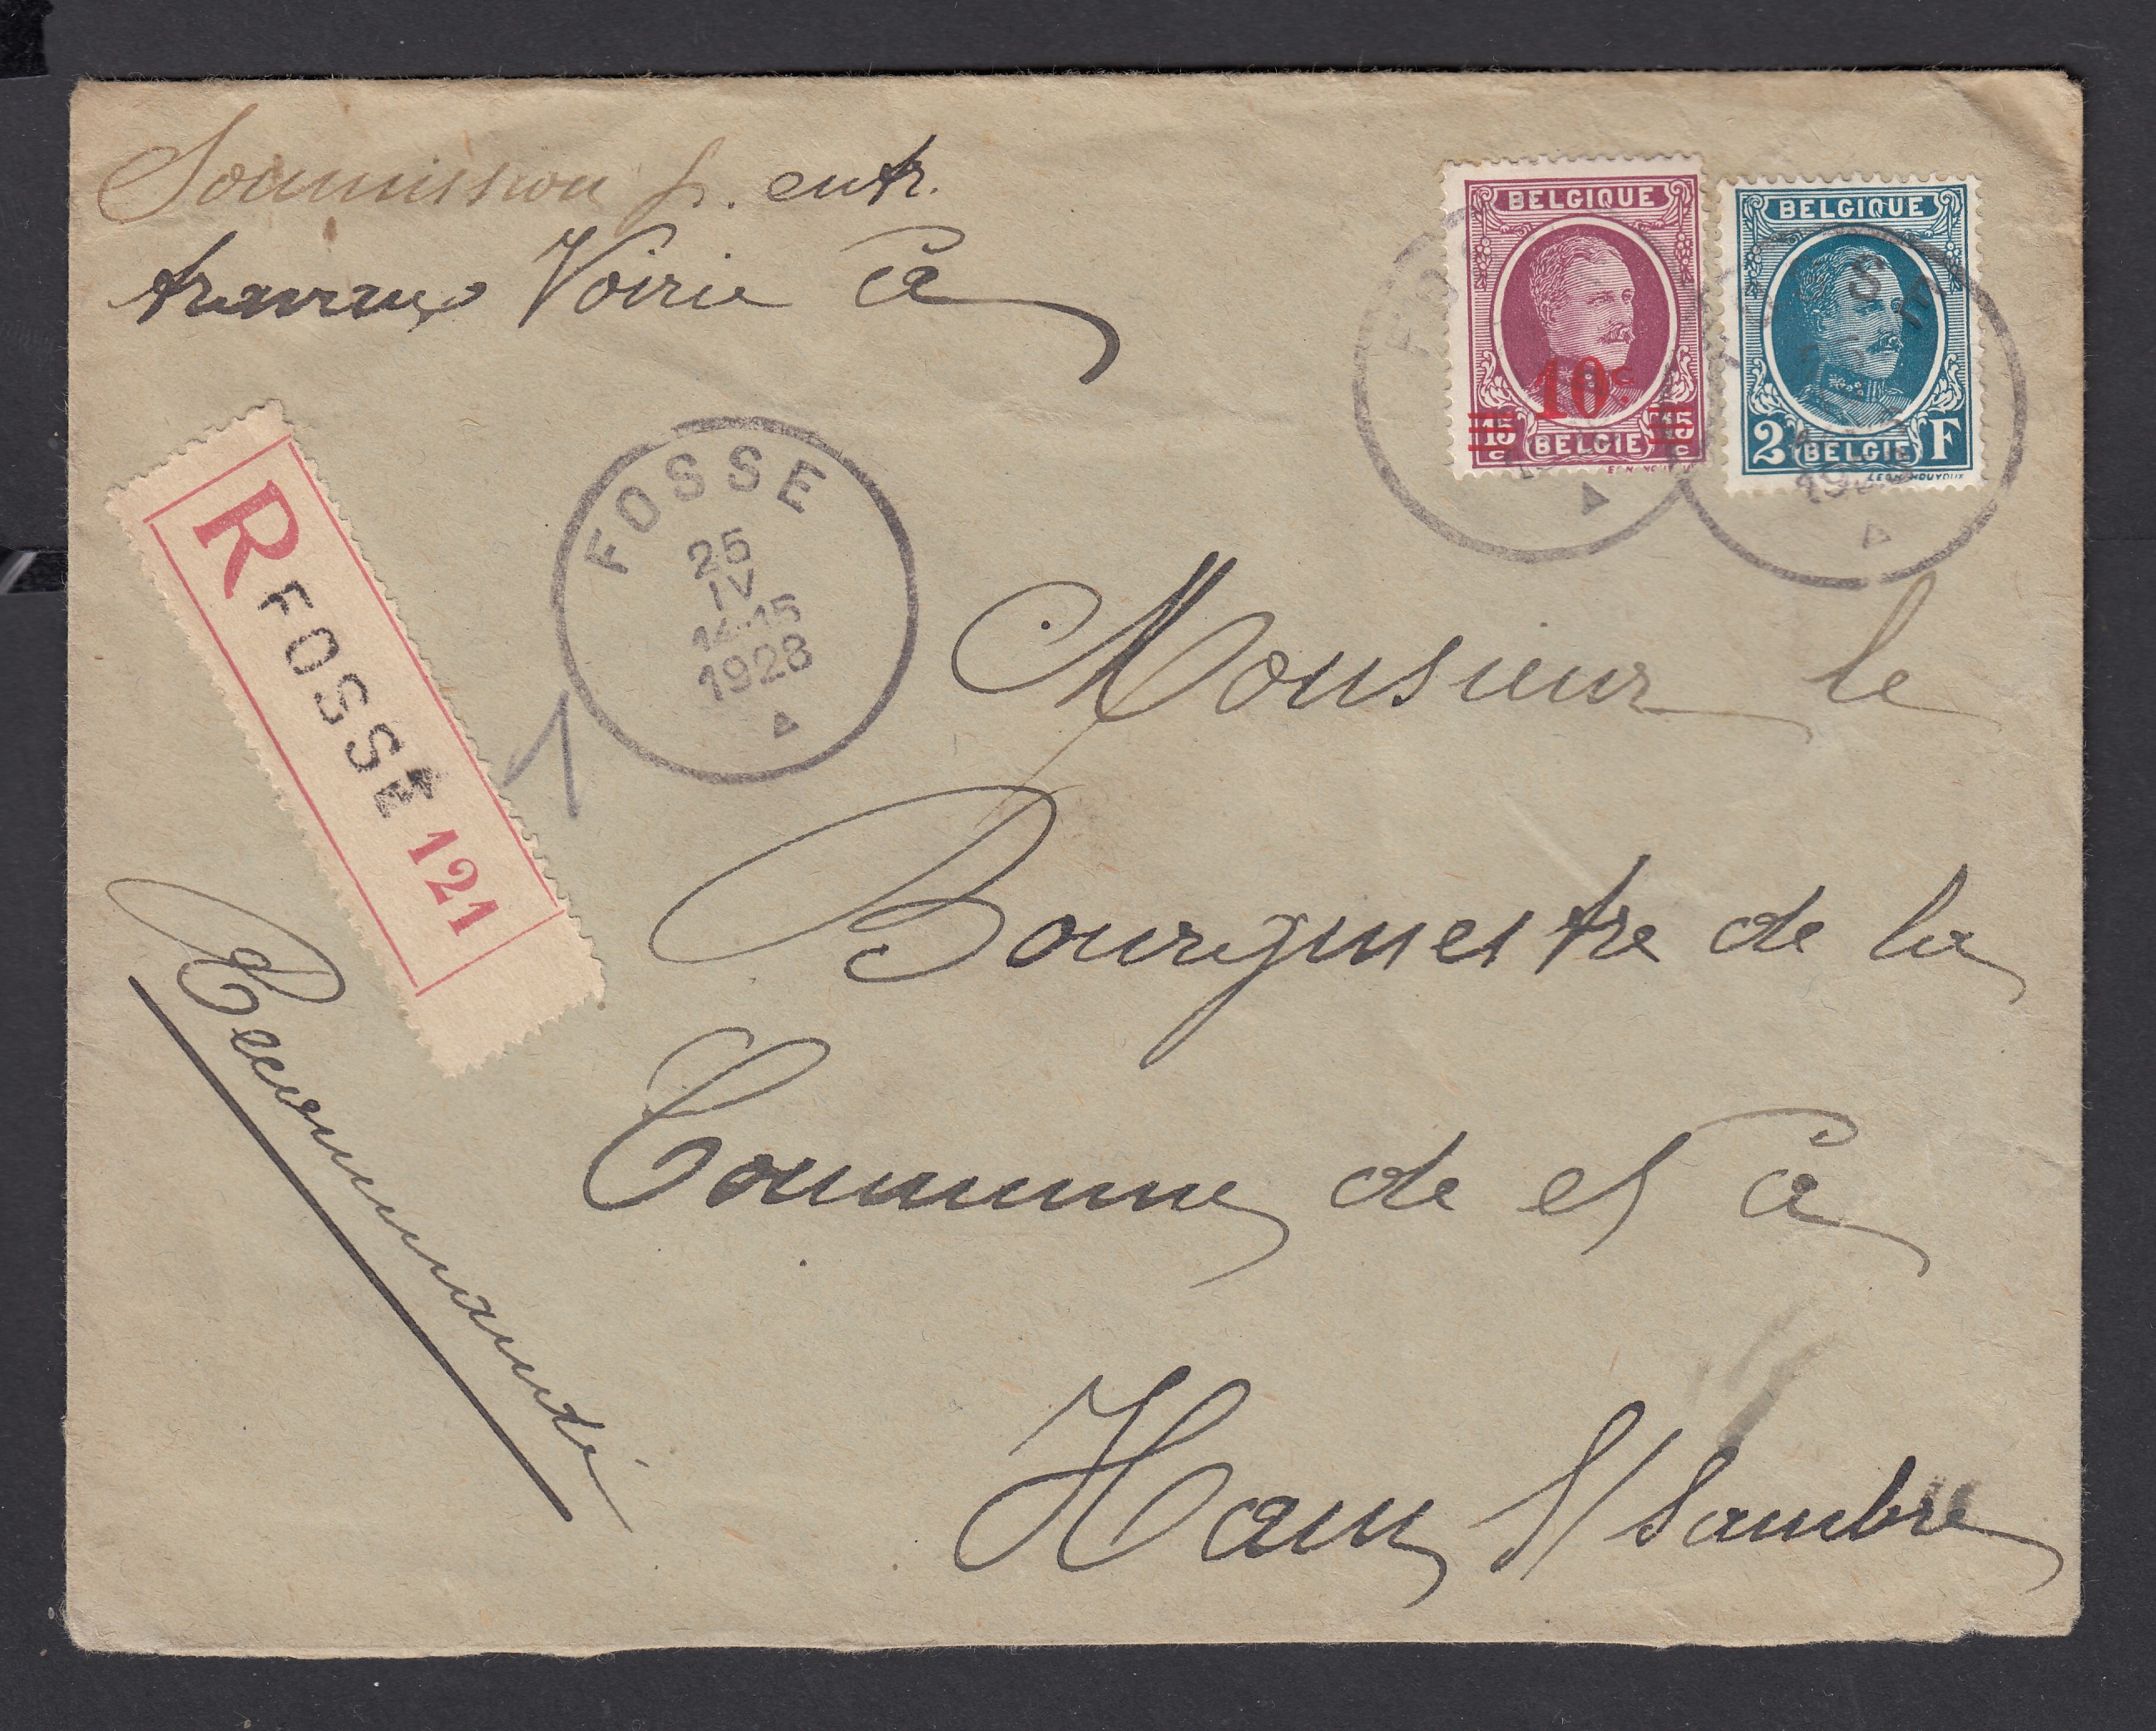 Soumission p. entr.
travaux Voirie à
BELGIQUE
10c
15 BELGIE 15
c c
BELGIQUE
2 BELGIE F
FOSSE
1928
FOSSE
25
IV
14-15
1928
R
FOSSE
121
1
Monsieur le
Bourgmestre de la
Commune de et à
Ham s/Sambre
Recommandé